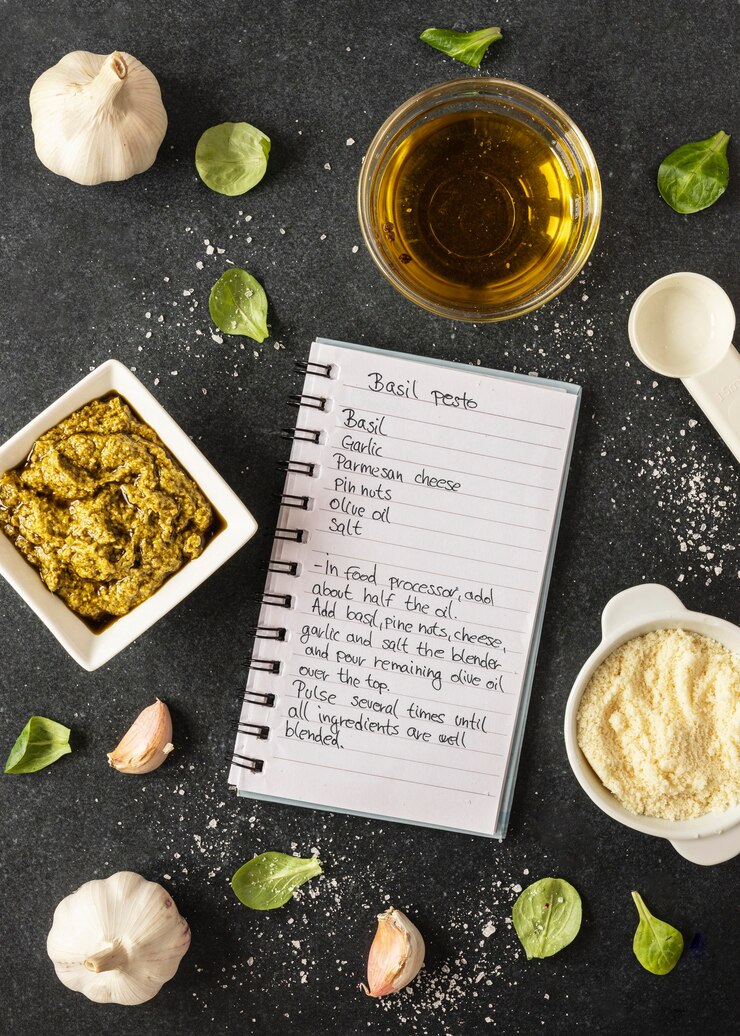 Basil pesto
Basil
Garlic
Parmesan cheese
Pin nuts
Olive oil
Salt
-in food processor, add
about half the oil.
Add basil, pine nuts, cheese,
garlic and salt the blender
and pour remaining olive oil
over the top.
Pulse several times until
all ingredients are well
blended.